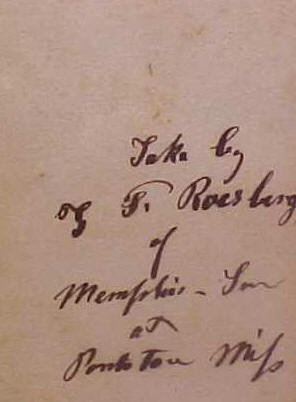 Take by
F. Roesberg
of
Memphis - Ten
at
Pontotoc Miss